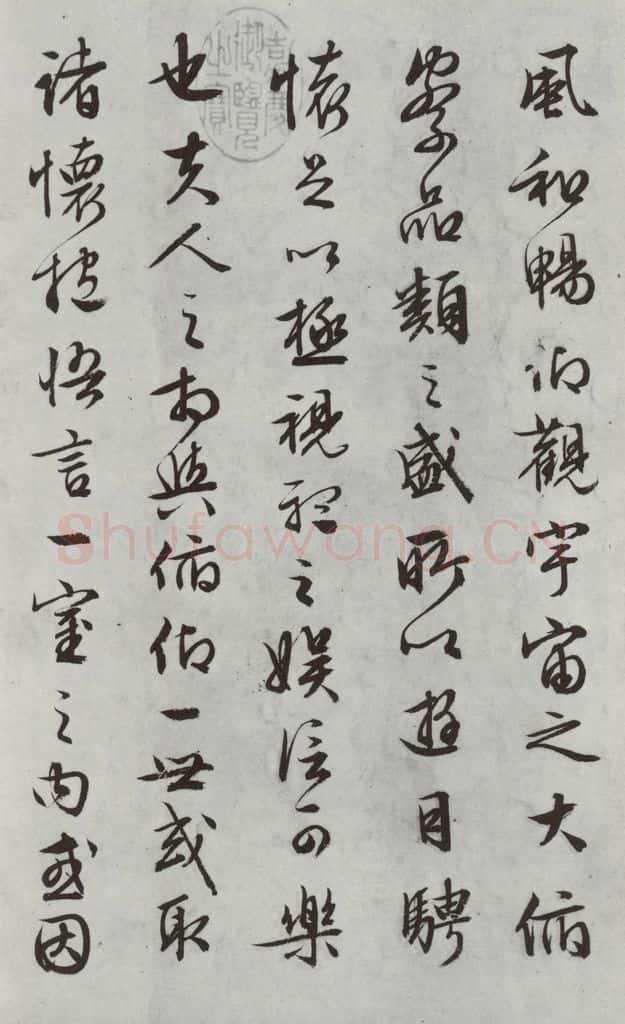 風和暢仰觀宇宙之大俯
察品類之盛所以遊目騁
懷足以極視聽之娛信可樂
也夫人之相與俯仰一世或取
諸懷抱悟言一室之內或因
嘉慶御覽之寶
Shufawang.CN